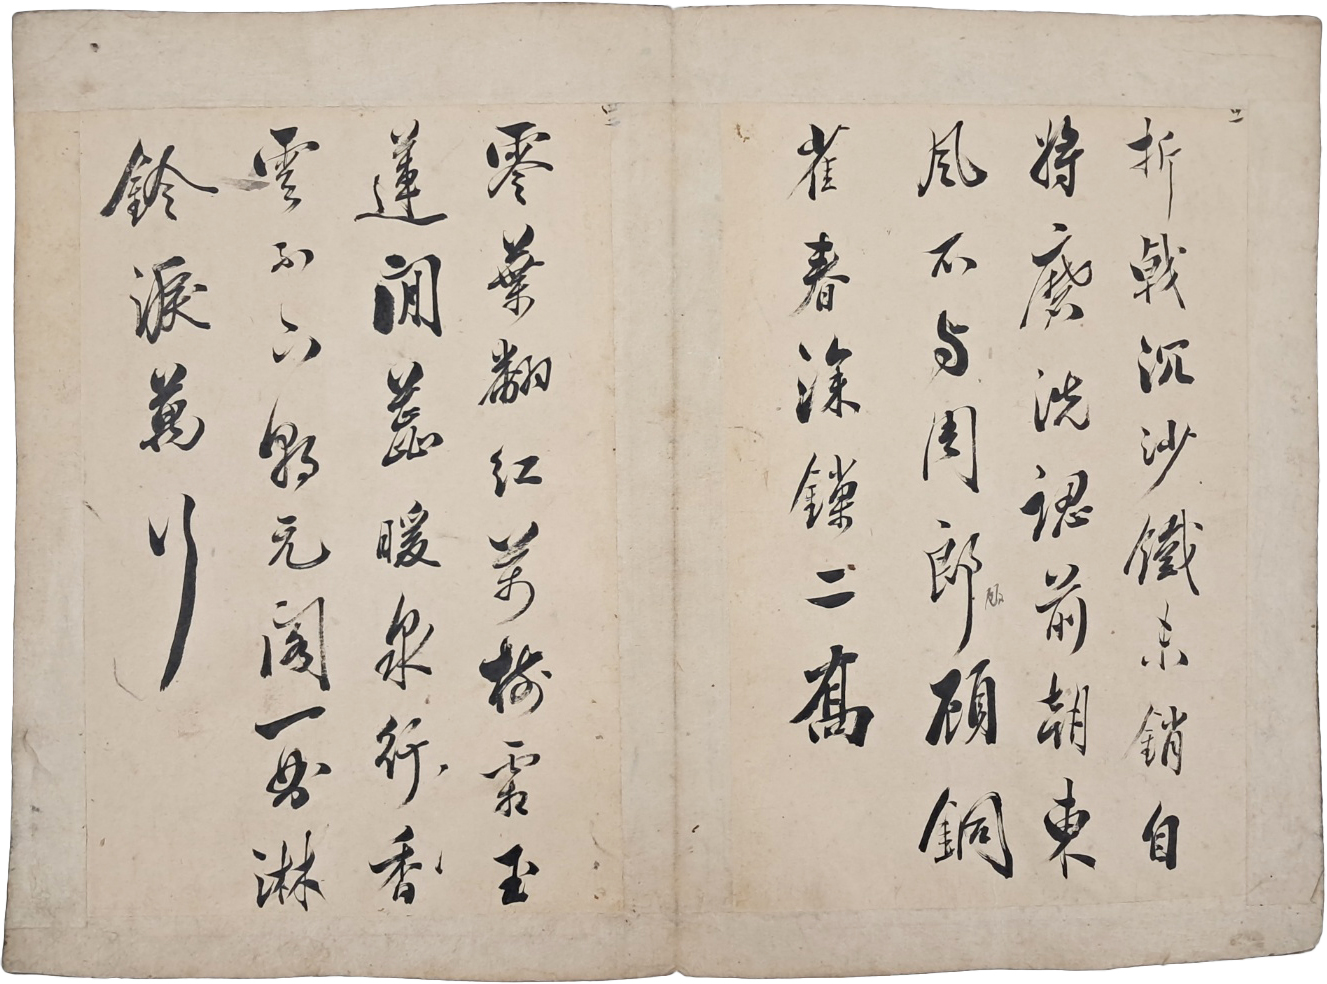 折戟沉沙鐵未銷自
將磨洗認前朝東
風不与周郎顧銅
雀春深鎖二喬
零葉翻紅萬樹霜玉
蓮開蕊暖泉行香
雲不下朝元閣一曲淋
鈴淚萬行